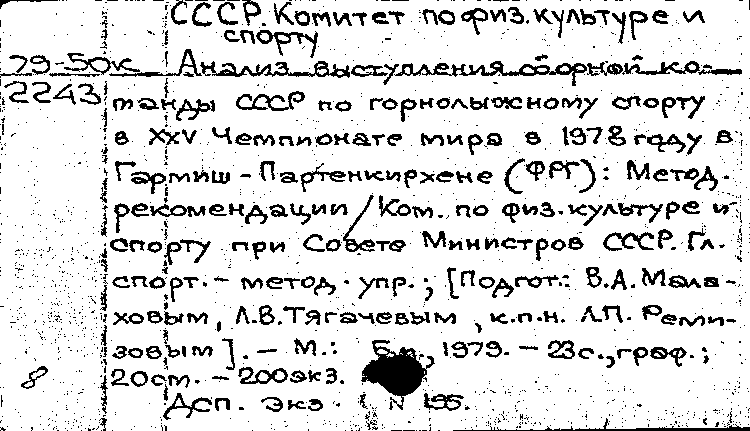 СССР. Комитет по физ. культуре и
спорту
79-50к Анализ выступления сборной ко-
2243 манды СССР по горнолыжному спорту
в XXV Чемпионате мира в 1978 году в
Гармиш-Партенкирхене (ФРГ): Метод.
рекомендации / Ком. по физ. культуре и
спорту при Совете Министров СССР. Гл.
спорт.- метод. упр.; [Подгот.: В.А. Мала-
ховым, Л.В. Тягачевым, к.п.н. Л.П. Реми-
зовым]. - М.: Б.и., 1979. - 23с., граф.;
8 20см. - 200экз.
ДСП. Экз. N 195.